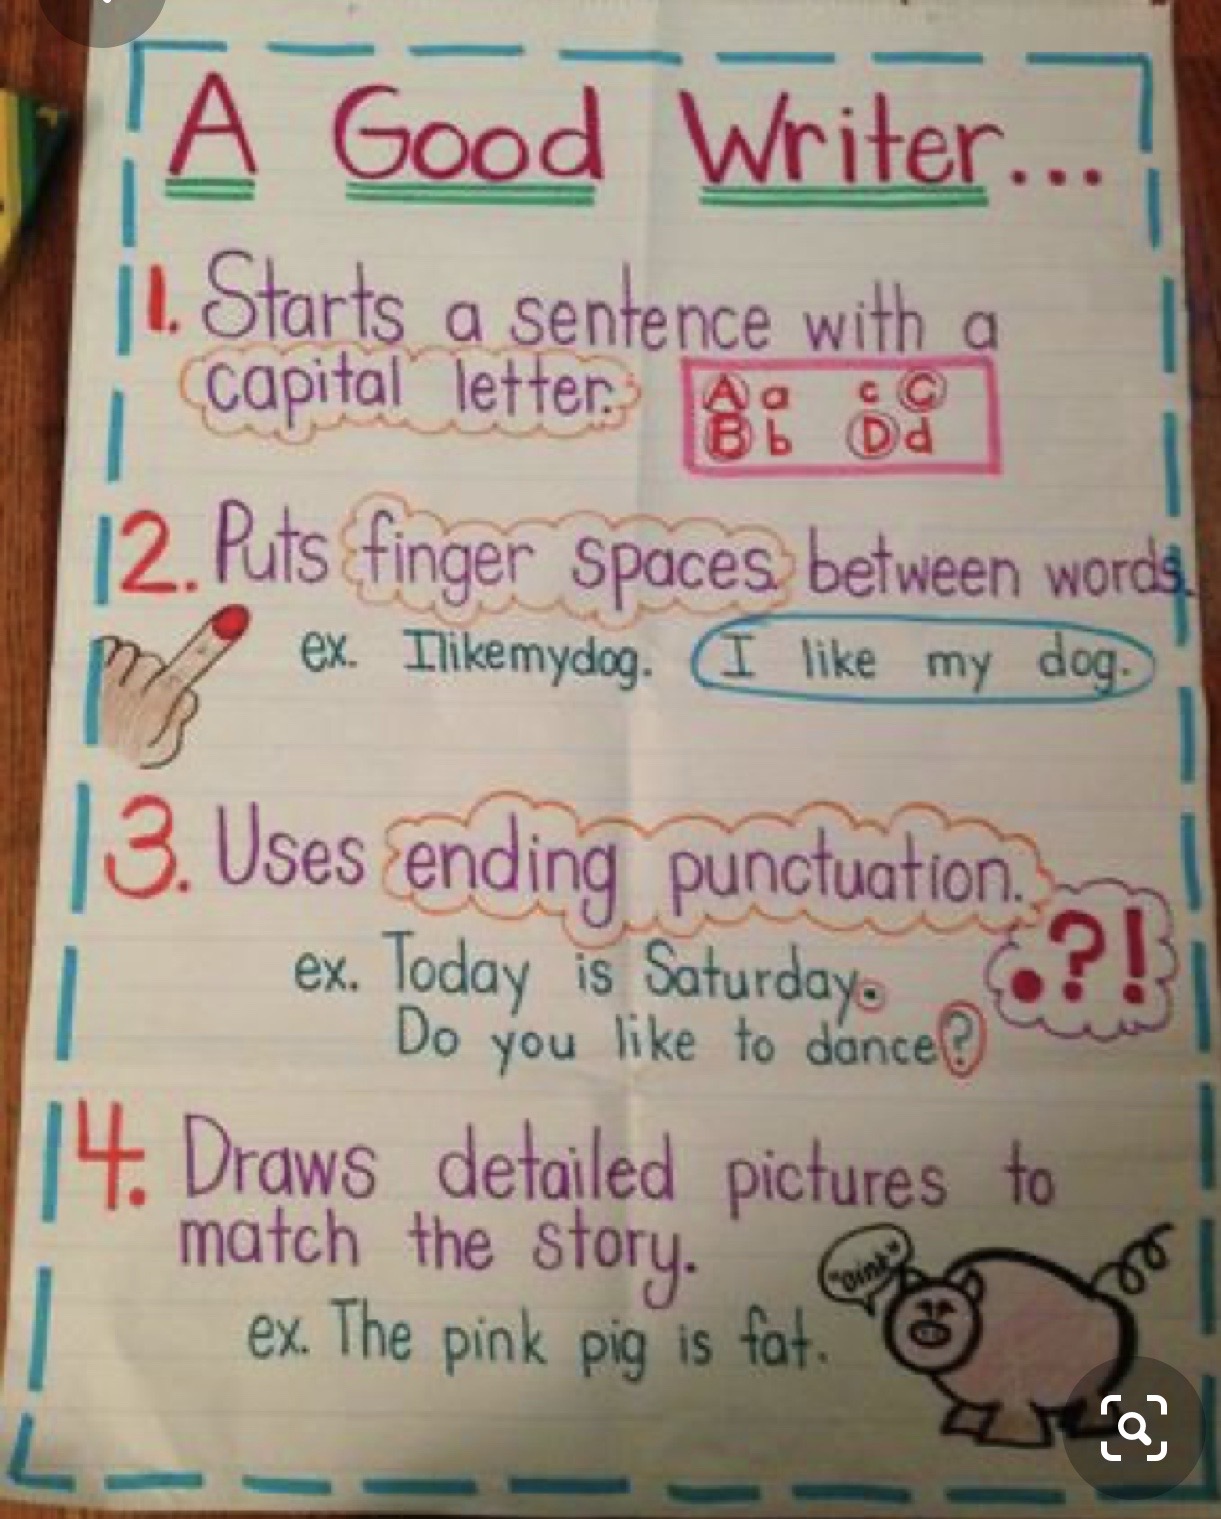 A Good Writer...
1. Starts a sentence with a
capital letter.
A a c C
B b D d
2. Puts finger spaces between words.
ex. Ilikemydog. I like my dog.
3. Uses ending punctuation.
. ? !
ex. Today is Saturday.
Do you like to dance?
4. Draws detailed pictures to
match the story.
"Oink"
ex. The pink pig is fat.